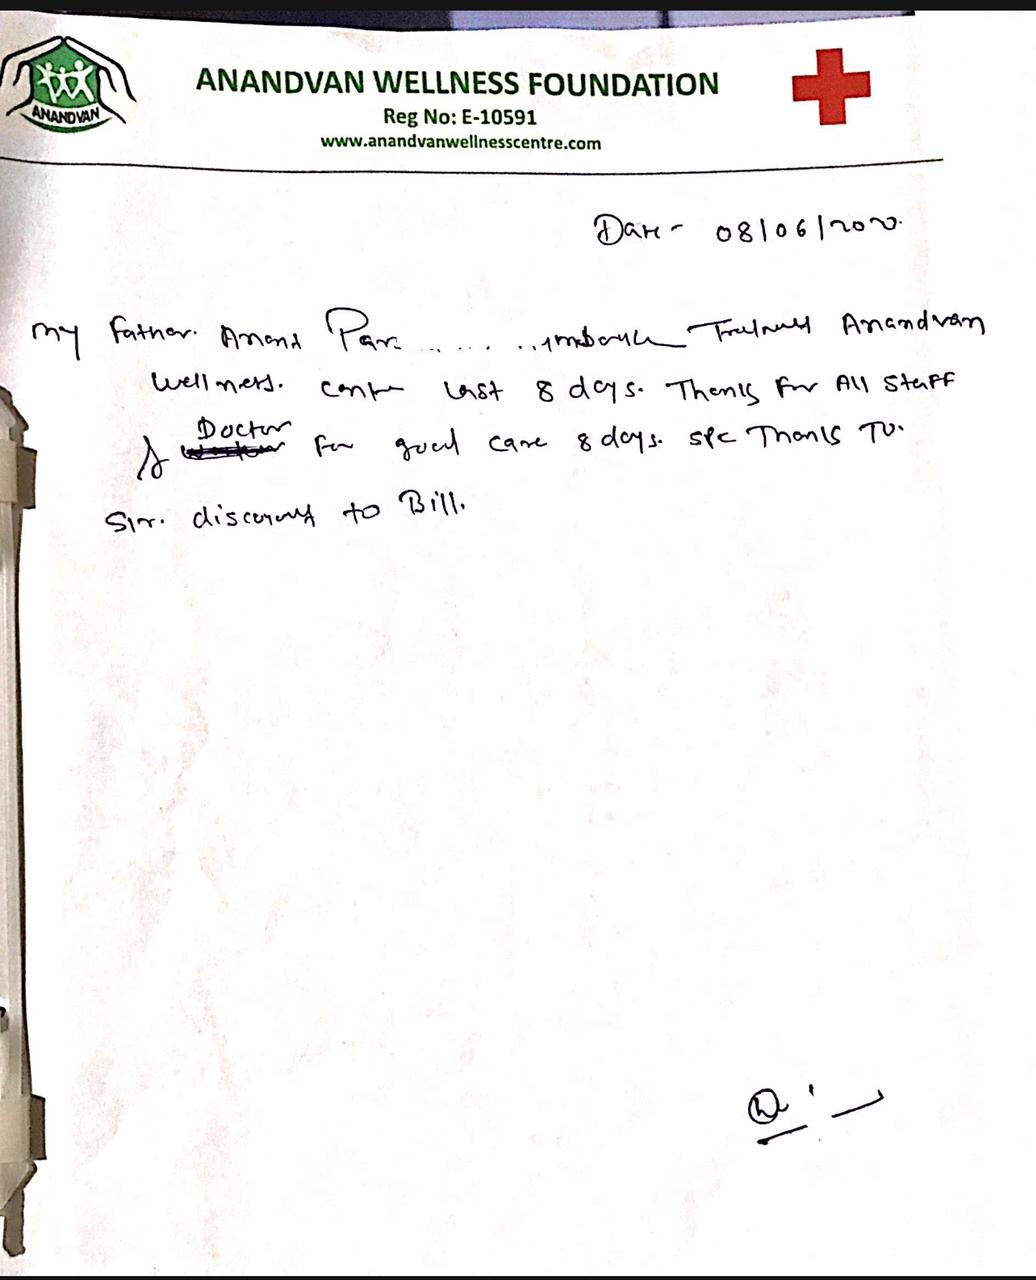 ANANDVAN
ANANDVAN WELLNESS FOUNDATION
Reg No: E-10591
www.anandvanwellnesscentre.com
Date - 08/06/2020.
My Father. Anand Anandvan
Wellness. last 8 days. Thanks for All Staff
& Doctor for good care 8 days. spc Thanks To.
Sir. discount to Bill.